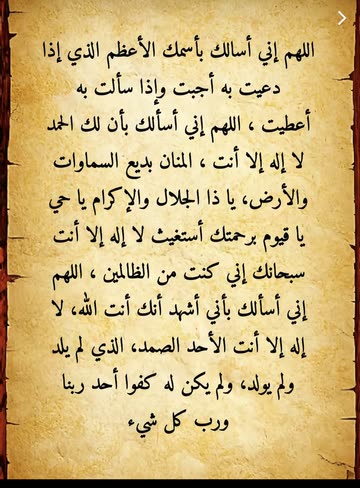 اللهم إني أسالك بأسمك الأعظم الذي إذا
دعيت به أجبت وإذا سألت به
أعطيت ، اللهم إني أسألك بأن لك الحمد
لا إله إلا أنت ، المنان بديع السماوات
والأرض، يا ذا الجلال والإكرام يا حي
يا قيوم برحمتك أستغيث لا إله إلا أنت
سبحانك إني كنت من الظالمين ، اللهم
إني أسألك بأني أشهد أنك أنت الله، لا
إله إلا أنت الأحد الصمد، الذي لم يلد
ولم يولد، ولم يكن له كفوا أحد ربنا
ورب كل شيء